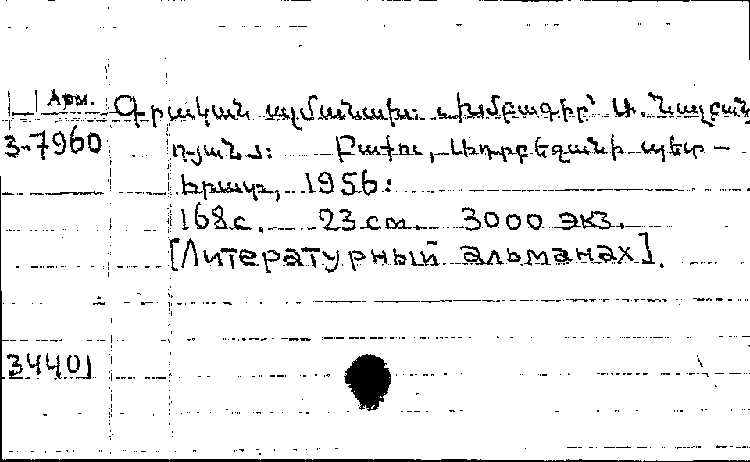 Арм. Գրական ալմանախ: Խմբագիր՝ Ա. Նալբանդ
3-7960 ոյան: Բաքու, Ադրբեջանի պետ –
հրատ, 1956:
168 с. 23 см. 3000 экз.
[Литературный альманах].
34401